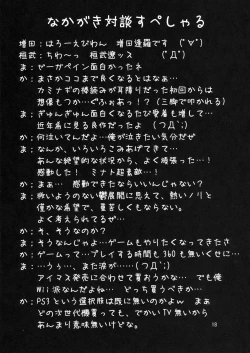 なかがき対談すぺしゃる
増田：はろーえびわん 増田達羅です (ﾟ∀ﾟ)
桓武：ちわ～っ 桓武遼ッス (ﾟДﾟ)
ま：ゼーガペイン面白かったネ
か：まさかココまで良くなるとはなぁ…
カミナギの棒読みが耳障りだった初回からは
想像もつか…ぐふぉあっ！？（三脚で叩かれる）
ま：ぎゅんぎゅん面白くなるたび愛着も増して…
近年希に見る良作だったよ (つД;)
か：何泣いてんだよ…俺が泣きたい気分だぜ
ま：なんか、いろいろこみあげてきて…
あんな絶望的な状況から、よく頑張った…！
感動した！ ミナト超素敵…！
か：まぁ… 感動できたならいいんじゃない？
ま：救いようのない鬱展開に思えて、熱いノリと
僅かな希望で、重苦しくならない。
よく考えられてるぜ…
か：そ、そうなのか？
ま：そうなんじゃよ…ゲームもやりたくなってきたさ
か：ゲームって…プレイする時間も360も無いくせに…
ま：…ううっ、また涙が……(つД;)
アイマス発売に合わせて買おうかな… でも俺
Wii派なんだよね… どっち買うべきか…
か：PS3という選択肢は既に無いのかよｗ まぁ
どの次世代機買っても、でかいTV無いから
あんまり意味無いけどな。
18